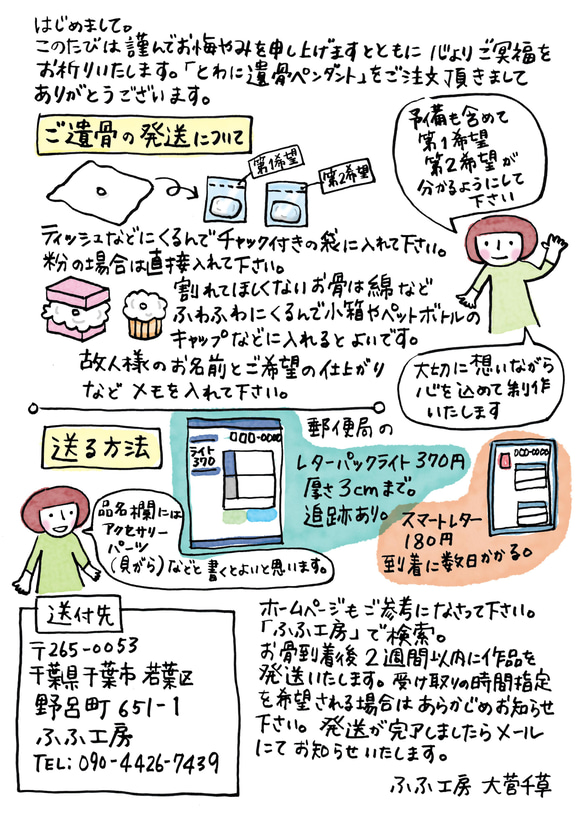 はじめまして。
このたびは 謹んでお悔やみを申し上げますとともに 心よりご冥福を
お祈りいたします。「とわに遺骨ペンダント」をご注文頂きまして
ありがとうございます。
ご遺骨の発送について
第1希望
第2希望
予備も含めて
第1希望
第2希望が
分かるようにして
下さい
ティッシュなどにくるんでチャック付きの袋に入れて下さい。
粉の場合は直接入れて下さい。
割れてほしくないお骨は綿など
ふわふわにくるんで小箱やペットボトルの
キャップなどに入れるとよいです。
故人様のお名前とご希望の仕上がり
などメモを入れて下さい。
大切に想いながら
心を込めて制作
いたします
送る方法
ライト
370
000-0000
郵便局の
レターパックライト 370円
厚さ3cmまで。
追跡あり。
000-0000
スマートレター
180円
到着に数日かかる。
品名欄には
アクセサリー
パーツ
(貝がら)などと書くとよいと思います。
送付先
〒265-0053
千葉県千葉市 若葉区
野呂町 651-1
ふふ工房
TEL: 090-4426-7439
ホームページもご参考になさって下さい。
「ふふ工房」で検索。
お骨到着後 2週間以内に作品を
発送いたします。受け取りの時間指定
を希望される場合はあらかじめお知らせ
下さい。発送が完了しましたらメール
にてお知らせいたします。
ふふ工房 大菅千草